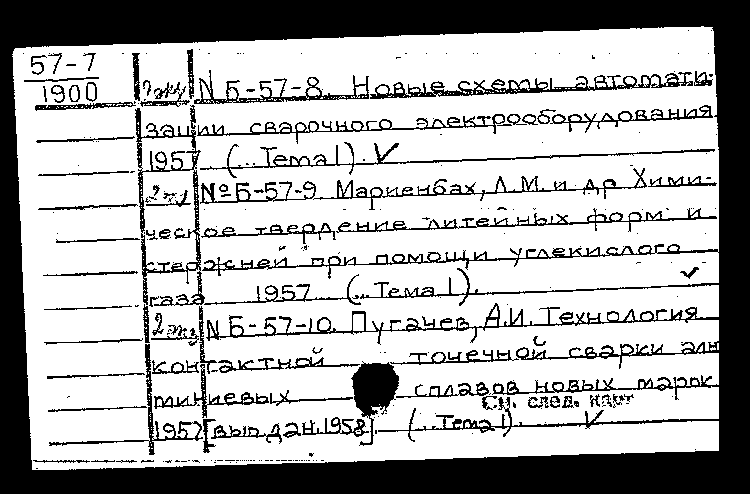 57-7
1900
2 экз N Б-57-8. Новые схемы автомати-
зации сварочного электрооборудования
1957 (... Тема 1). ✓
2 экз №Б-57-9. Мариенбах, Л.М. и др Хими-
ческое твердение литейных форм и
стержней при помощи углекислого
газа 1957 (... Тема 1). ✓
2 экз N Б-57-10. Пугачев, А.И. Технология
контактной точечной сварки алю
миниевых сплавов новых марок
См. след. карт
1957 [вып.дан. 1958]. (... Тема 1). ✓